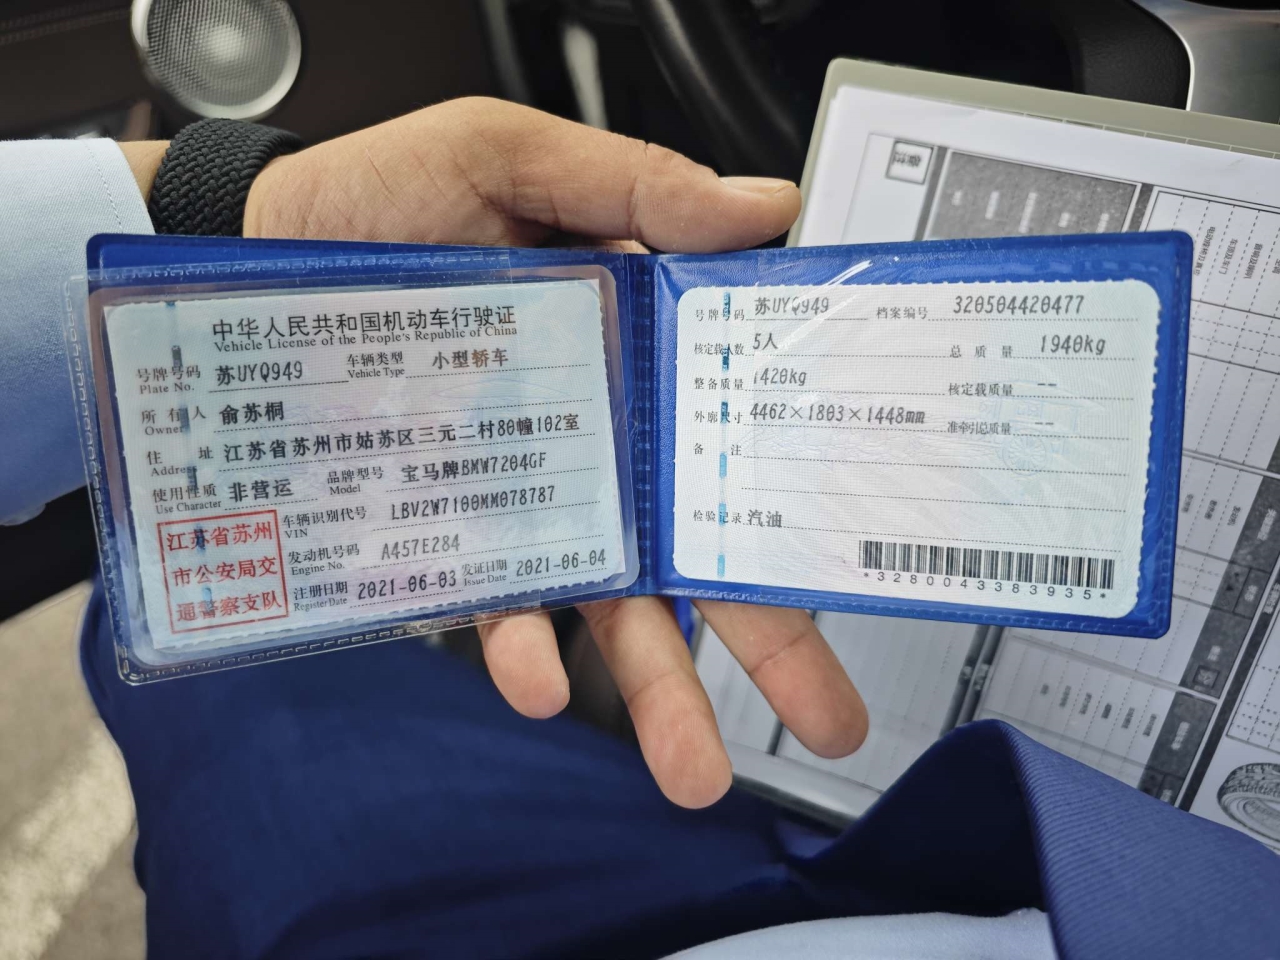 中华人民共和国机动车行驶证
Vehicle License of the People's Republic of China
号牌号码 苏UYQ949 车辆类型 小型轿车
Plate No. Vehicle Type
所有人 俞苏桐
Owner
住址 江苏省苏州市姑苏区三元二村80幢102室
Address
使用性质 非营运 品牌型号 宝马牌BMW7204GF
Use Character Model
江苏省苏州
市公安局交
通警察支队
车辆识别代号 LBV2W7100MM078787
VIN
发动机号码 A457E284
Engine No.
注册日期 2021-06-03 发证日期 2021-06-04
Register Date Issue Date
号牌号码 苏UYQ949 档案编号 320504420477
核定载人数 5人 总质量 1940kg
整备质量 1420kg 核定载质量 --
外廓尺寸 4462×1803×1448mm 准牵引总质量 --
备注
检验记录 汽油
*3280043383935*
备注